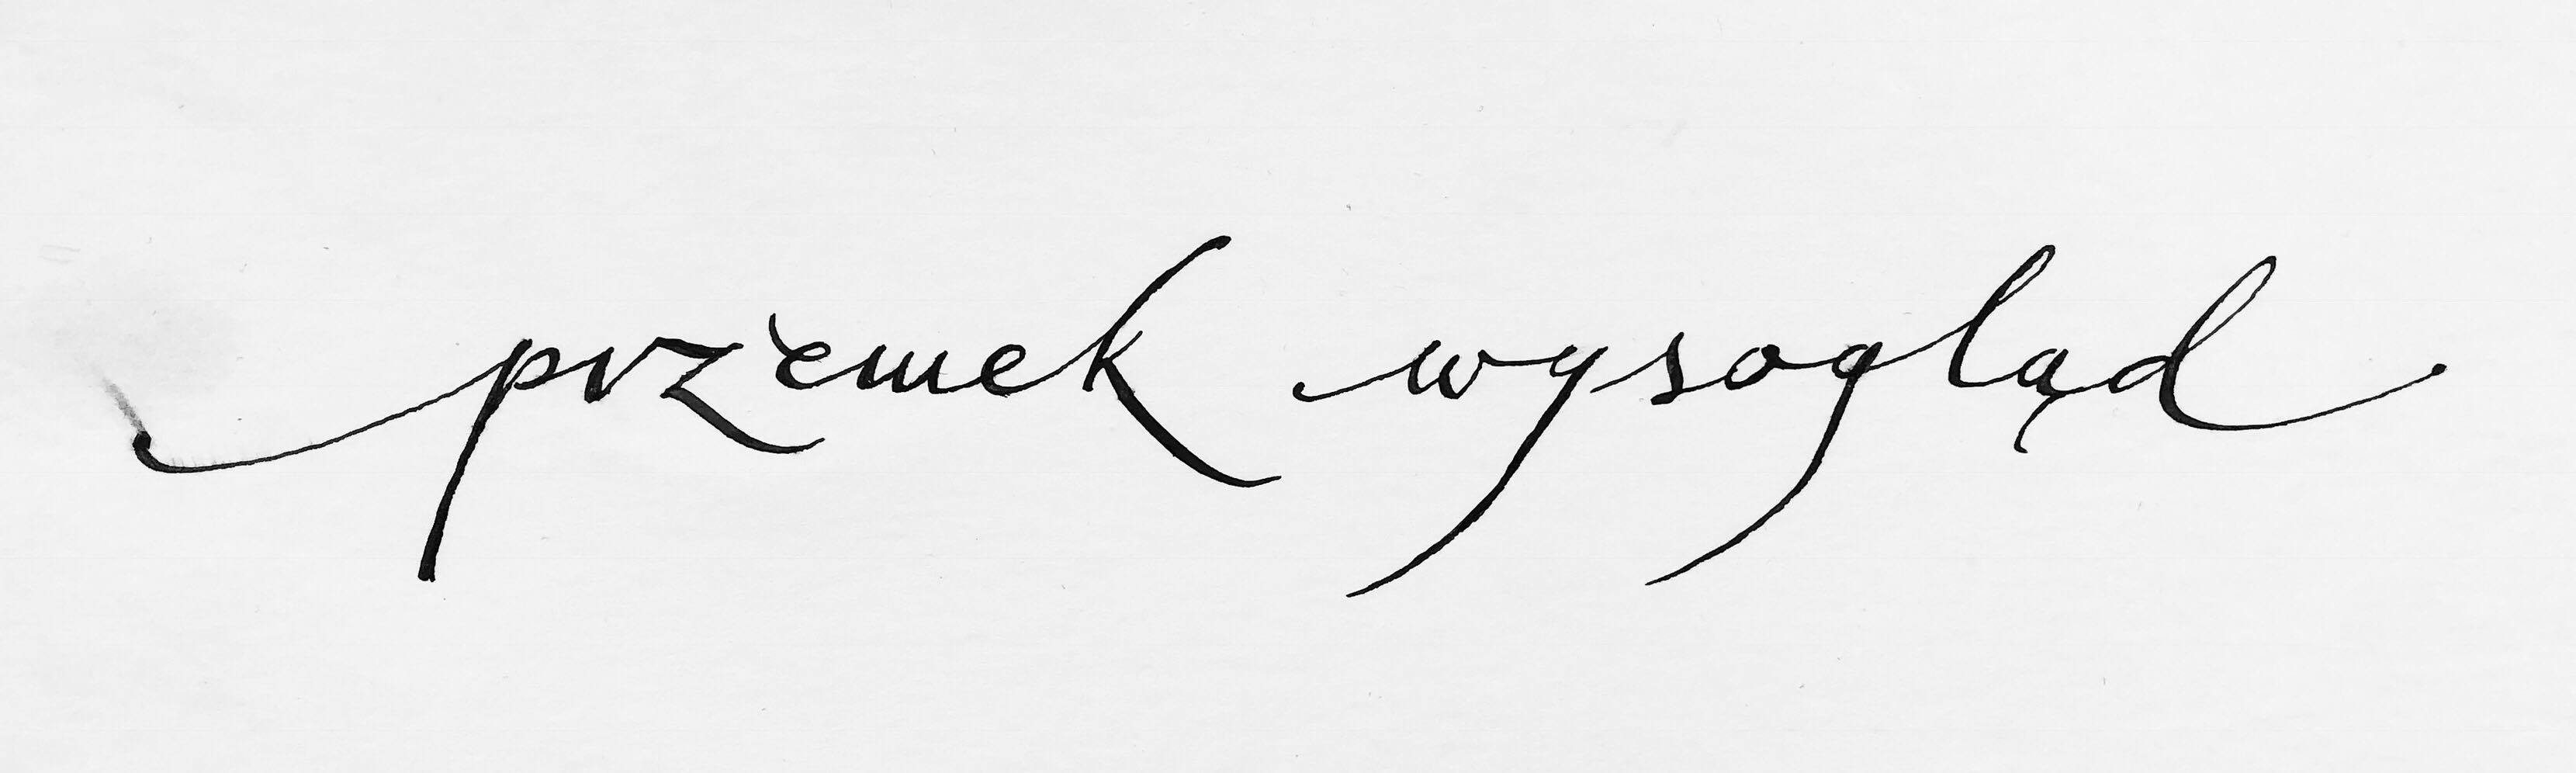 przemek wysogląd